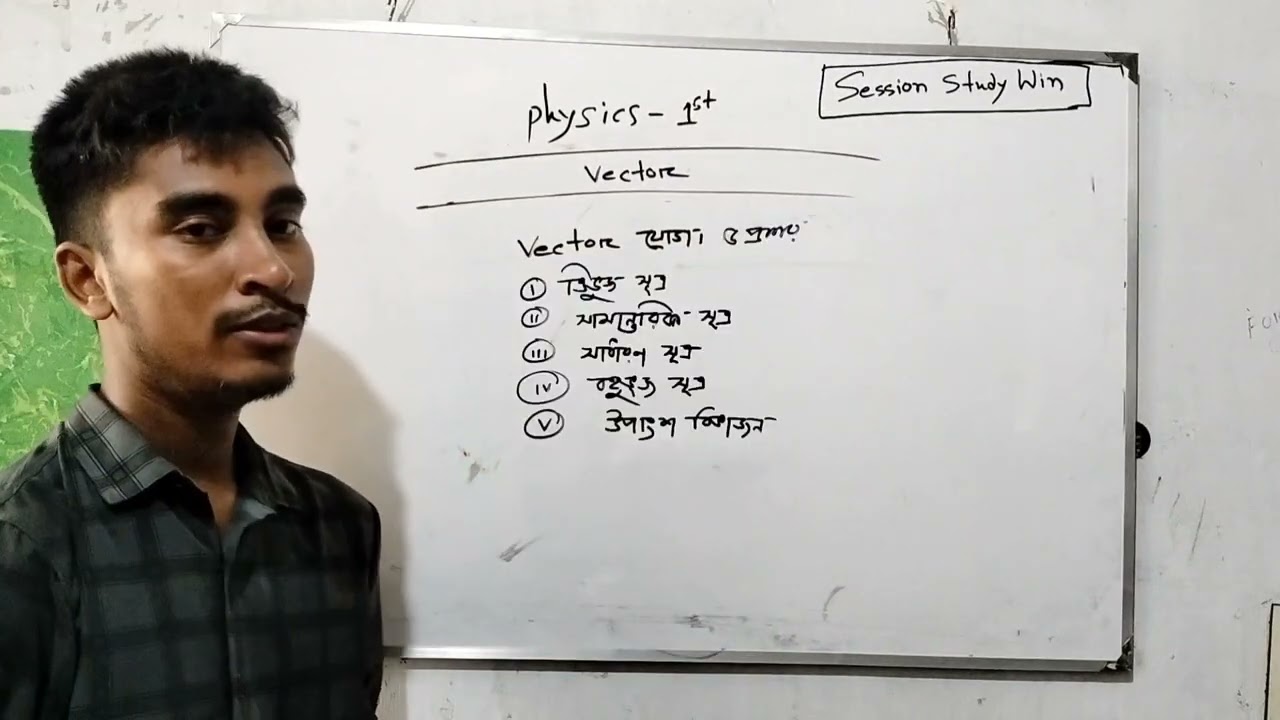 Session Study Win
physics - 1st
Vectore
Vectore যোজন ও
(I) ত্রিভুজ সূত্র
(II) সামান্তরিক সূত্র
(III) সাধারণ সূত্র
(IV) বহুভুজ সূত্র
(V) উপাংশ বিভাজন